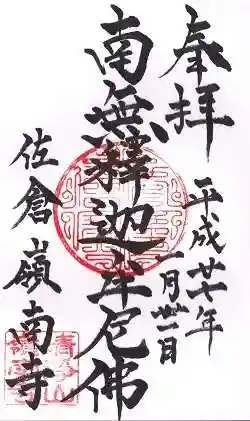 奉拝
平成廿七年
一月
南無釋迦牟尼佛
佐倉嶺南寺